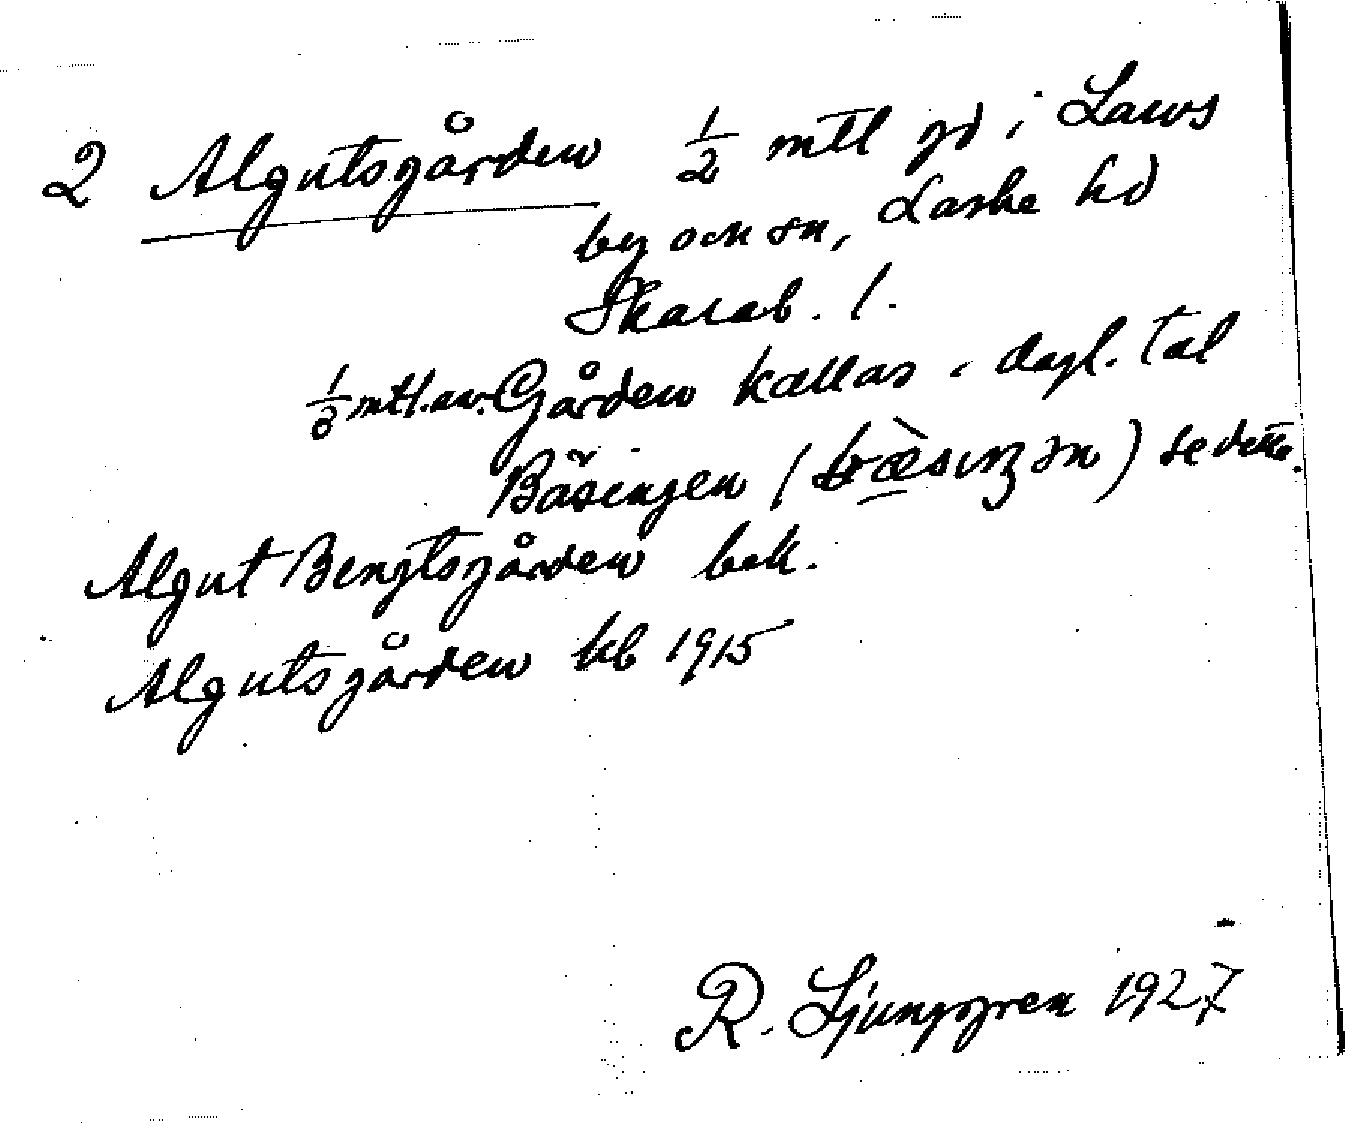 2 Algutsgården 1/2 mtl gd i Lavvs
by och sn, Laske hd
Skarab. l.
1/8 mtl. av. Gården kallas i dagl. tal
Bäsingen (bæ̀sıŋən) se detta.
Algut Bengtsgården bek.
Algutsgården kb 1915
R. Ljunggren 1927